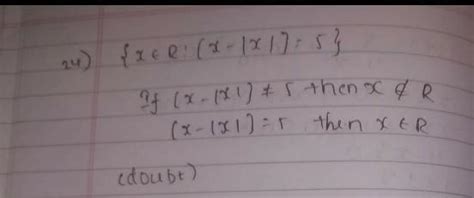 24) {x ∈ R : (x - |x|) = 5}
If (x - |x|) ≠ 5 then x ∉ R
(x - |x|) = 5 then x ∈ R
(doubt)